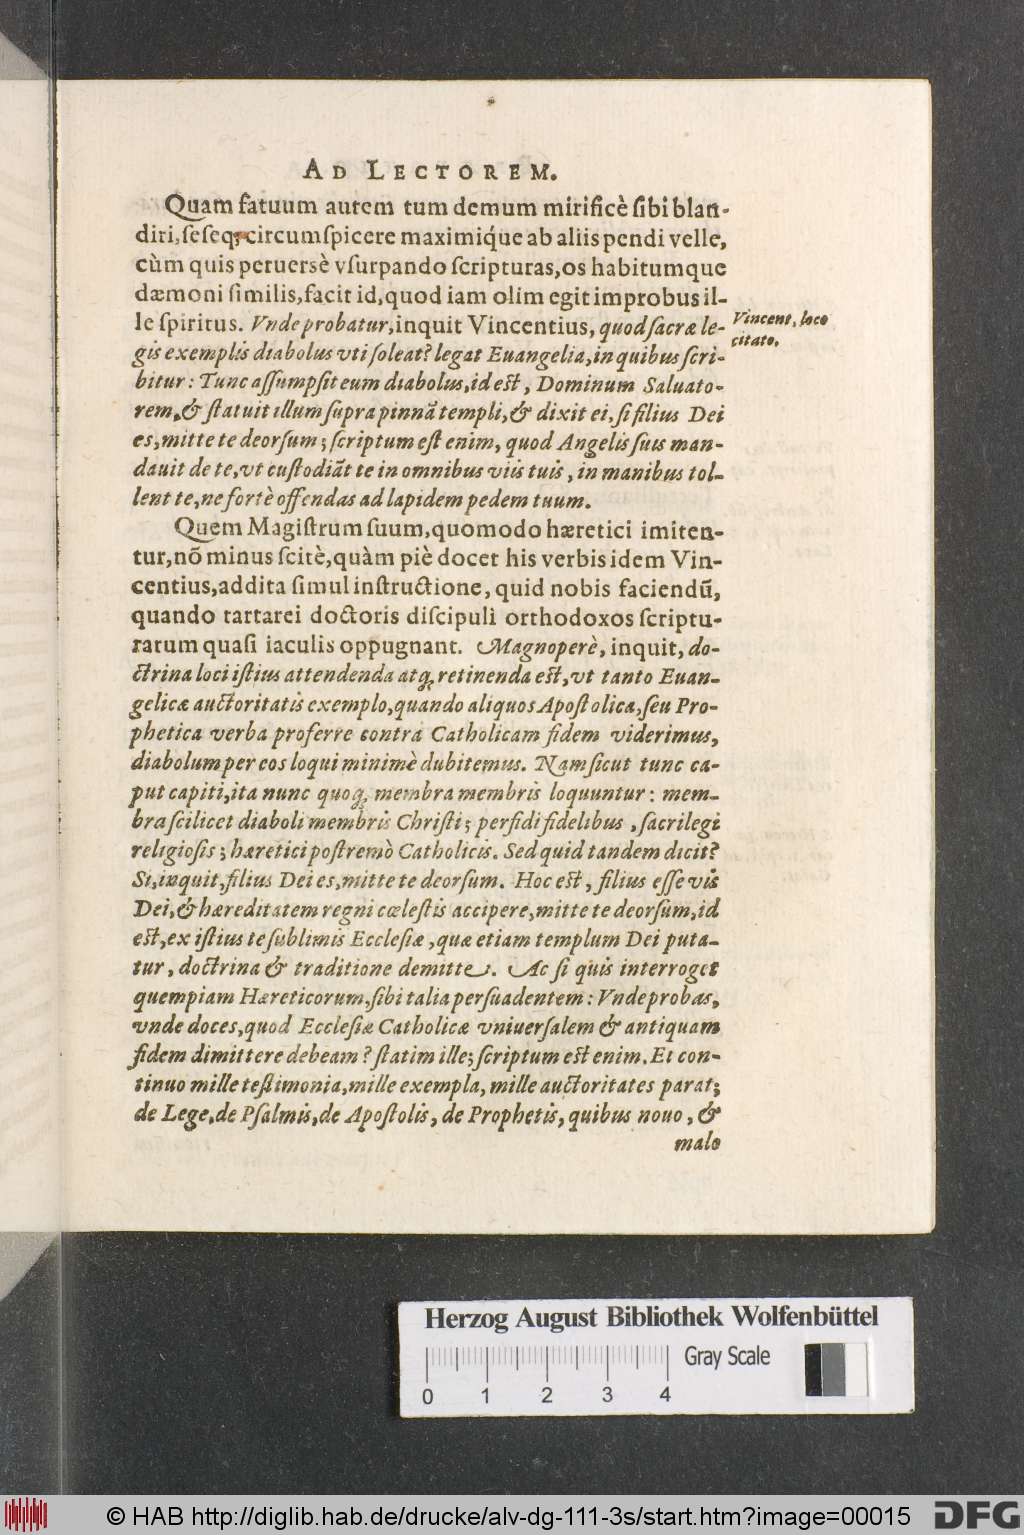 AD LECTOREM.
Quam fatuum autem tum demum mirificè ſibi blan-
diri, ſeſeq; circumſpicere maximiq́ue ab aliis pendi velle,
cùm quis peruersè vſurpando ſcripturas, os habitumque
dæmoni ſimilis, facit id, quod iam olim egit improbus il-
le ſpiritus. Vnde probatur, inquit Vincentius, quod ſacræ le-
gis exemplis diabolus vti ſoleat? legat Euangelia, in quibus ſcri-
bitur: Tunc aſſumpſit eum diabolus, id eſt, Dominum Saluato-
rem, & ſtatuit illum ſupra pinnā templi, & dixit ei, ſi filius Dei
es, mitte te deorſum; ſcriptum eſt enim, quod Angelis ſuis man-
dauit de te, vt cuſtodiāt te in omnibus viis tuis, in manibus tol-
lent te, ne fortè offendas ad lapidem pedem tuum.
Vincent. loco
citato.
Quem Magiſtrum ſuum, quomodo hæretici imiten-
tur, nō minus ſcitè, quàm piè docet his verbis idem Vin-
centius, addita ſimul inſtructione, quid nobis faciendū,
quando tartarei doctoris diſcipuli orthodoxos ſcriptu-
rarum quaſi iaculis oppugnant. Magnoperè, inquit, do-
ctrina loci iſtius attendenda atq; retinenda eſt, vt tanto Euan-
gelicæ auctoritatis exemplo, quando aliquos Apoſtolica, ſeu Pro-
phetica verba proferre contra Catholicam fidem viderimus,
diabolum per eos loqui minimè dubitemus. Nam ſicut tunc ca-
put capiti, ita nunc quoq; membra membris loquuntur: mem-
bra ſcilicet diaboli membris Chriſti; perfidi fidelibus, ſacrilegi
religioſis; hæretici poſtremò Catholicis. Sed quid tandem dicit?
Si, inquit, filius Dei es, mitte te deorſum. Hoc eſt, filius eſſe vis
Dei, & hæreditatem regni cœleſtis accipere, mitte te deorſum, id
eſt, ex iſtius te ſublimis Eccleſiæ, quæ etiam templum Dei puta-
tur, doctrina & traditione demitte. Ac ſi quis interroget
quempiam Hæreticorum, ſibi talia perſuadentem: Vnde probas,
vnde doces, quod Eccleſiæ Catholicæ vniuerſalem & antiquam
fidem dimittere debeam? ſtatim ille; ſcriptum eſt enim, Et con-
tinuo mille teſtimonia, mille exempla, mille auctoritates parat;
de Lege, de Pſalmis, de Apoſtolis, de Prophetis, quibus nouo, &
malo
Herzog August Bibliothek Wolfenbüttel
Gray Scale
0 1 2 3 4
© HAB http://diglib.hab.de/drucke/alv-dg-111-3s/start.htm?image=00015
DFG